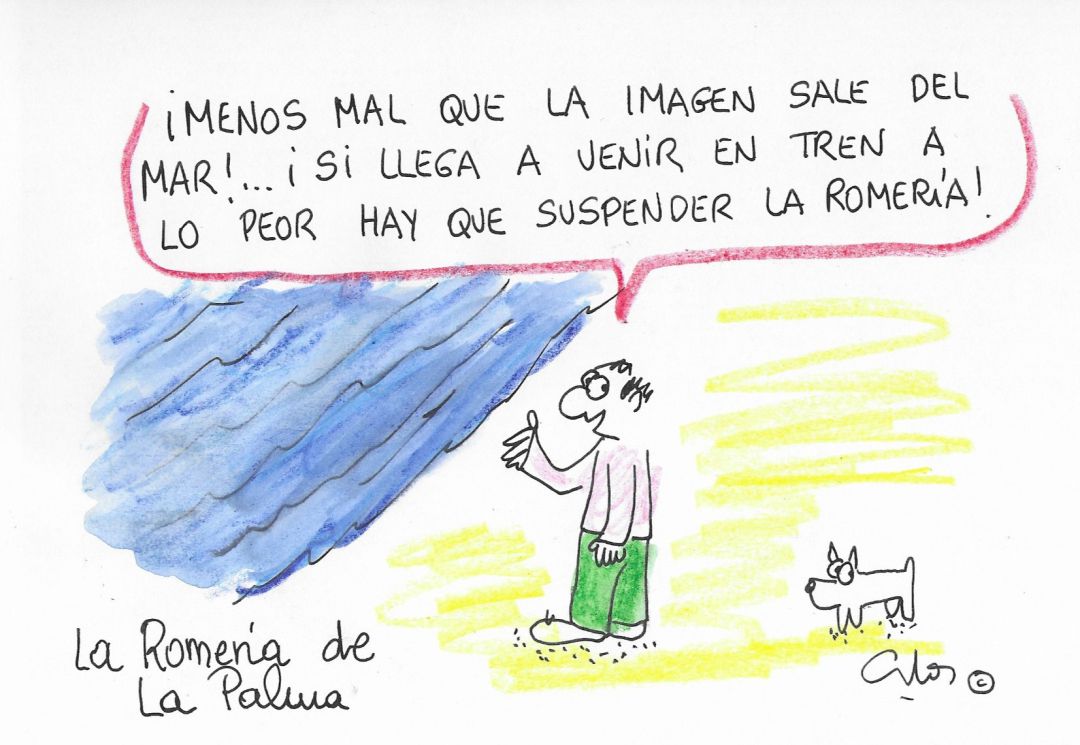 ¡MENOS MAL QUE LA IMAGEN SALE DEL
MAR!...¡SI LLEGA A VENIR EN TREN A
LO PEOR HAY QUE SUSPENDER LA ROMERÍA!
La Romería de
La Palma
©